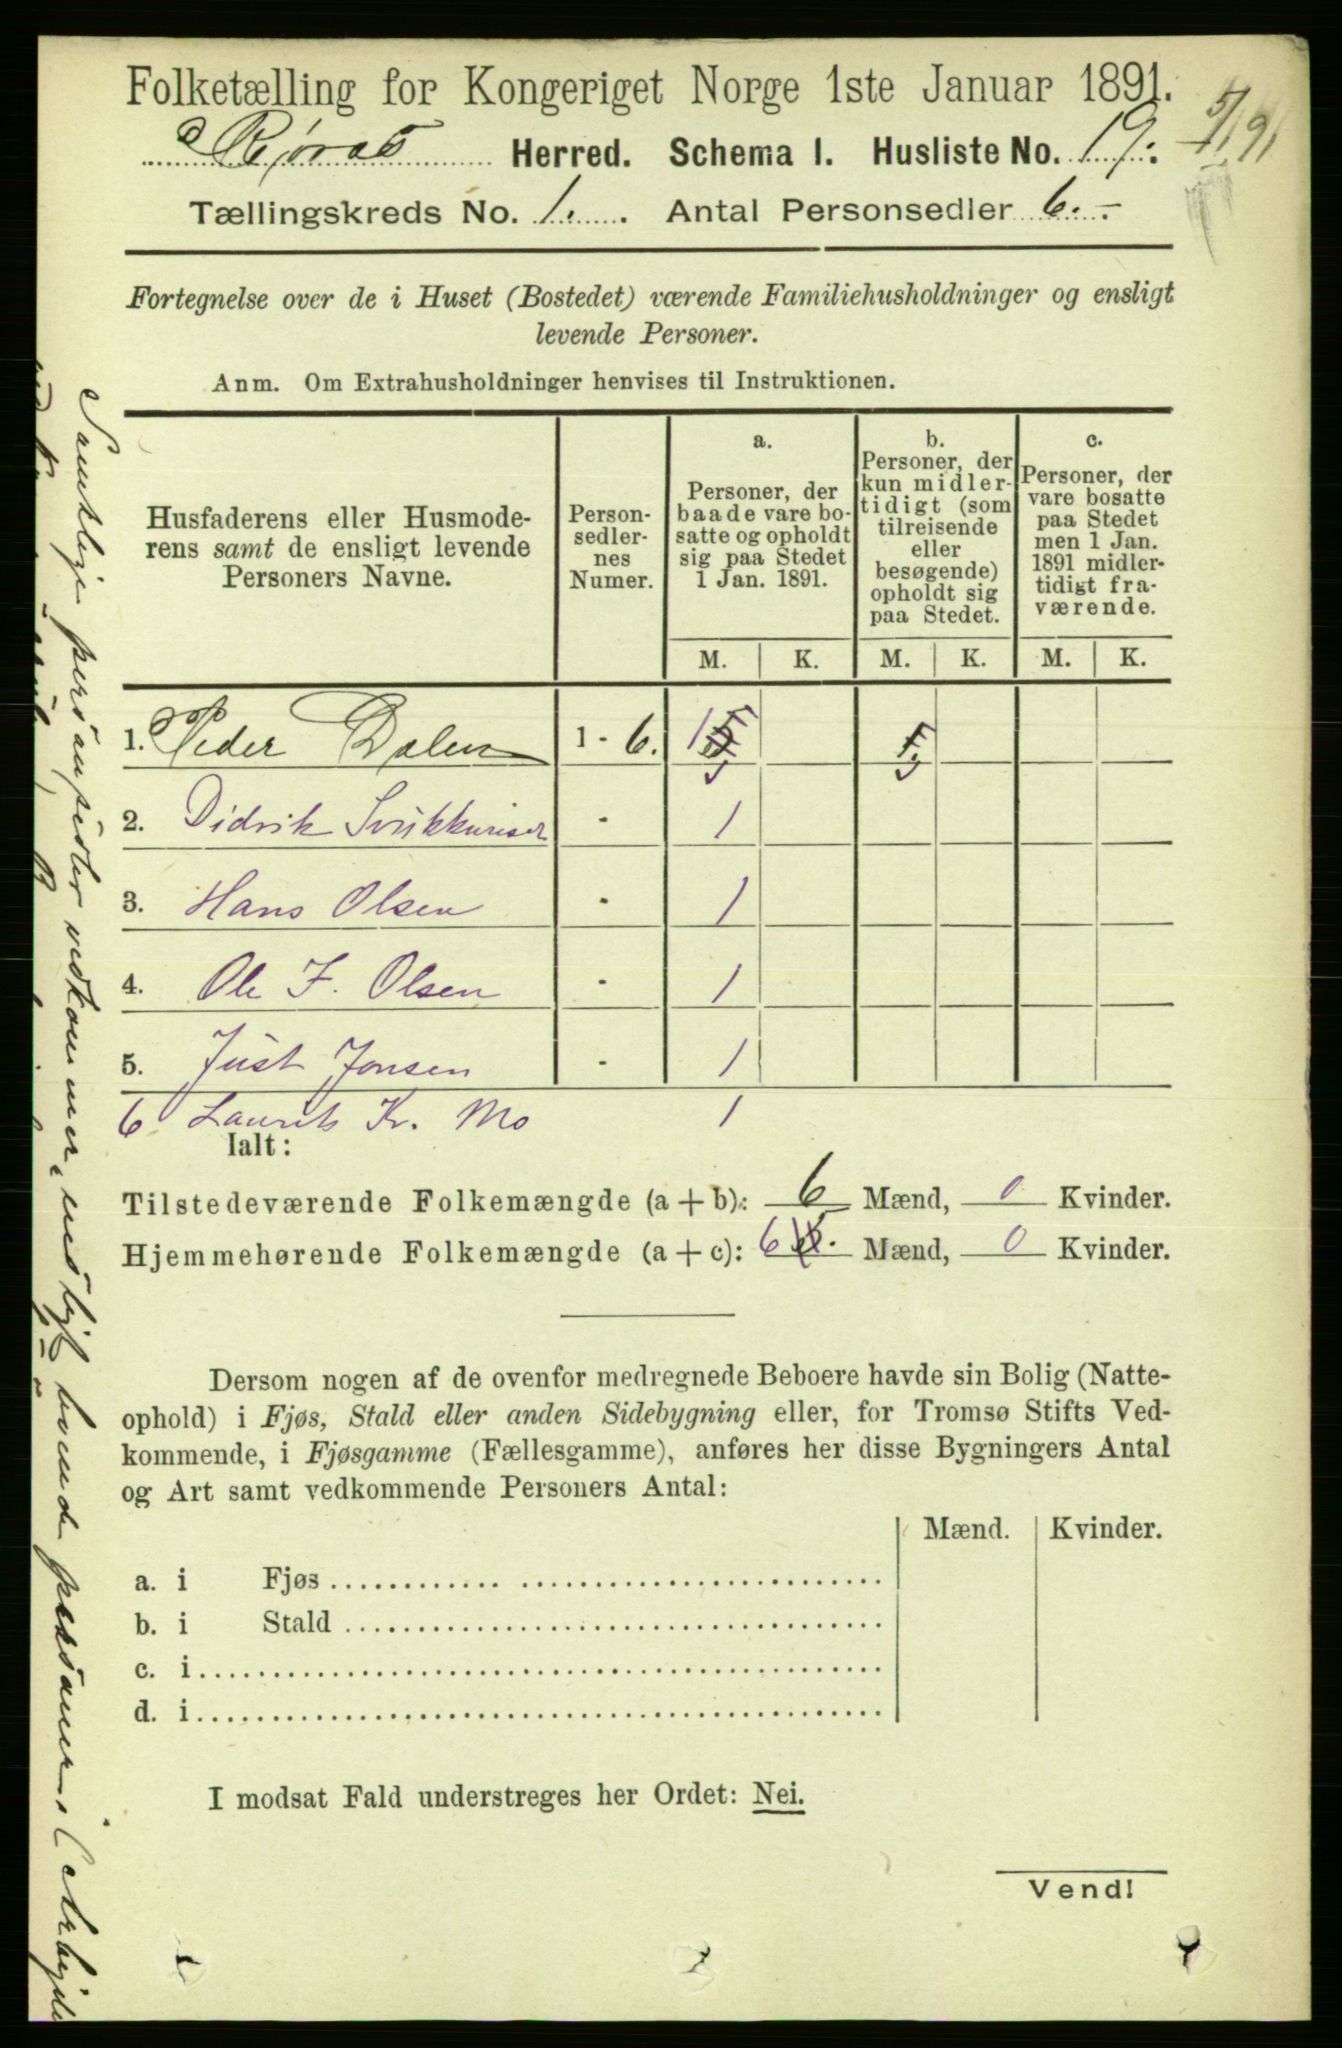 Folketælling for Kongeriget Norge 1ste Januar 1891.
Røros Herred. Schema I. Husliste No. 19.
5/1 91
Tællingskreds No. 1. Antal Personsedler 6.-
Fortegnelse over de i Huset (Bostedet) værende Familiehusholdninger og ensligt
levende Personer.
Anm. Om Extrahusholdninger henvises til Instruktionen.
Husfaderens eller Husmode-
rens samt de ensligt levende
Personers Navne.
Person-
sedler-
nes
Numer.
a.
Personer, der
baade vare bo-
satte og opholdt
sig paa Stedet
1 Jan. 1891.
b.
Personer, der
kun midler-
tidigt (som
tilreisende
eller
besøgende)
opholdt sig
paa Stedet.
c.
Personer, der
vare bosatte
paa Stedet
men 1 Jan.
1891 midler-
tidigt fra-
værende.
M. K. M. K. M. K.
1. Peder Dalen 1 - 6. 1
2. Didrik - 1
3. Hans Olsen - 1
4. Ole F. Olsen - 1
5. Just Jonsen - 1
6 Laurits Kr. Mo 1
Ialt:
Tilstedeværende Folkemængde (a + b): 6 Mænd, 0 Kvinder.
Hjemmehørende Folkemængde (a + c): 6 Mænd, 0 Kvinder.
Dersom nogen af de ovenfor medregnede Beboere havde sin Bolig (Natte-
ophold) i Fjøs, Stald eller anden Sidebygning eller, for Tromsø Stifts Ved-
kommende, i Fjøsgamme (Fællesgamme), anføres her disse Bygningers Antal
og Art samt vedkommende Personers Antal:
Mænd. Kvinder.
a. i Fjøs
b. i Stald
c. i
d. i
I modsat Fald understreges her Ordet: Nei.
Vend!
Samtlige personsedler vedkommer, enslig boende personer. (Arbejde